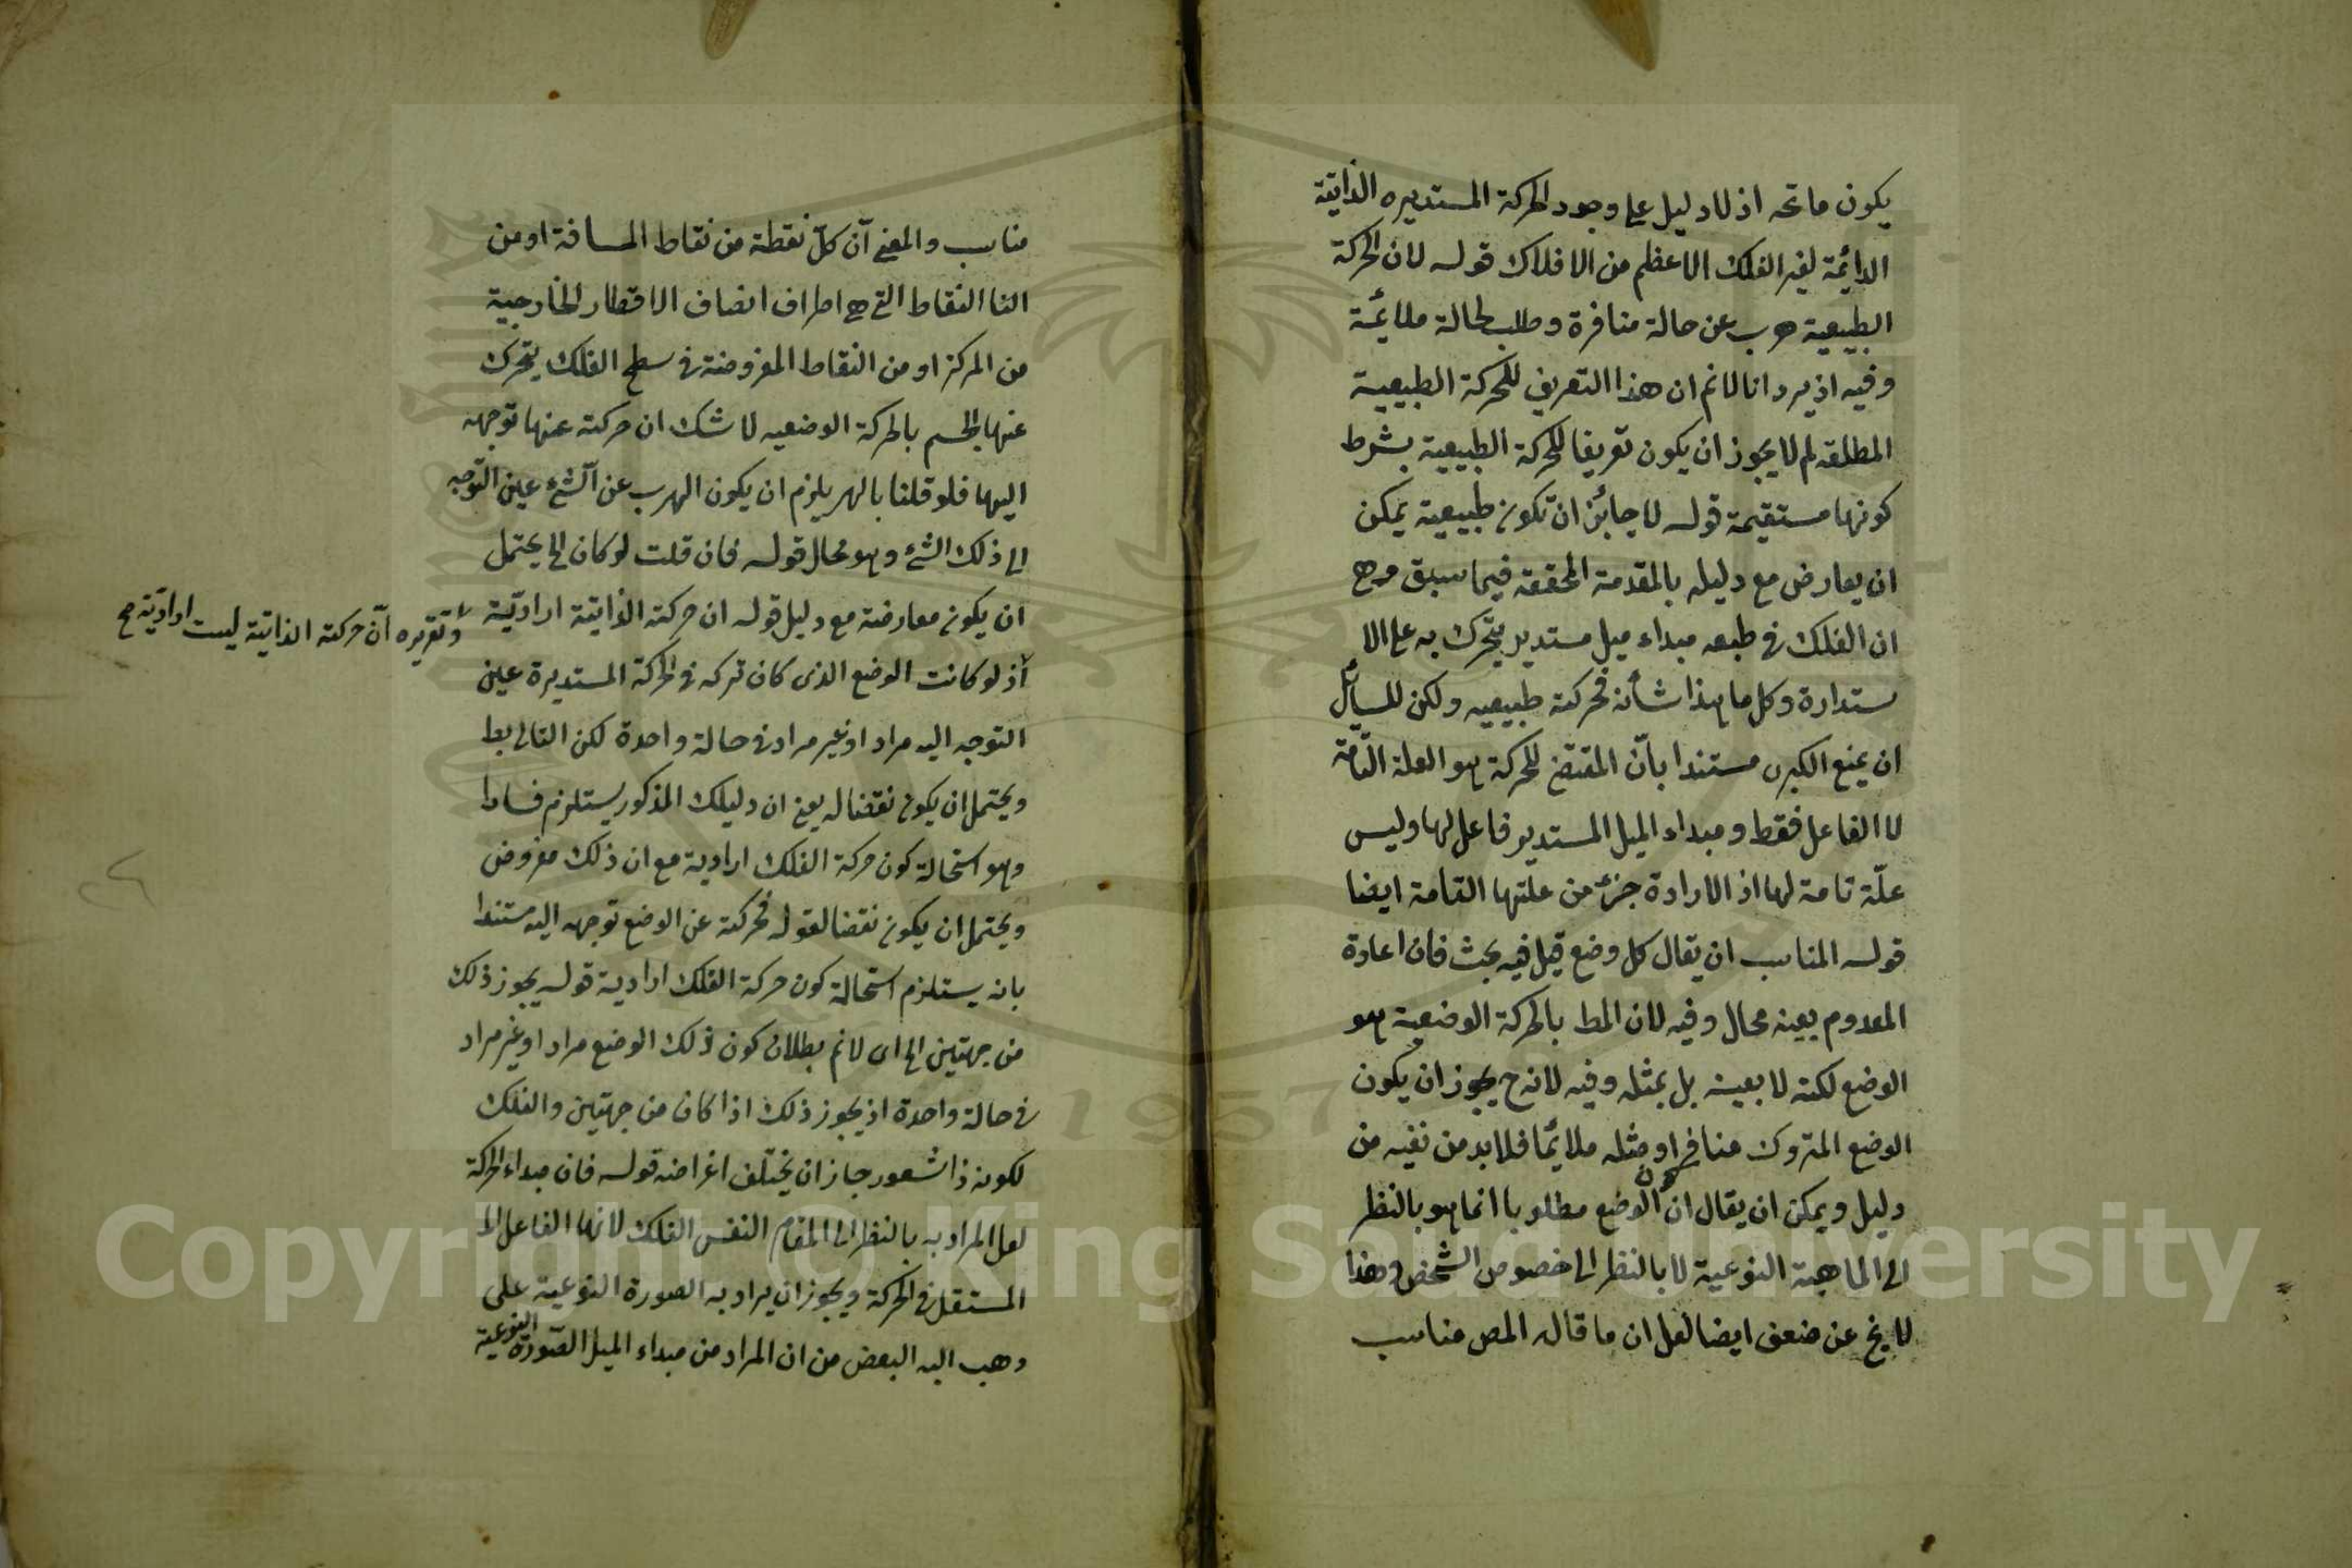 يكون ما تحه اذ لا دليل على وجود الحركة المستديره الذاتية
الدائمة لغير الفلك الاعظم من الافلاك قوله لان الحركة
الطبيعية هرب عن حالة منافرة وطلب لحالة ملائمة
وفيه اذ يرد انا لانم ان هذا التعريف للحركة الطبيعية
المطلقه لم لا يجوز ان يكون تعريفا للحركة الطبيعية بشرط
كونها مستقيمة قوله لا جائز ان تكون طبيعية يمكن
ان يعارض مع دليله بالمقدمة المحققة فيما سبق وهي
ان الفلك في طبعه مبداء ميل مستدير يتحرك به على الا
ستدارة وكل ما هذا شأنه فحركته طبيعيه ولكن للسائل
ان يمنع الكبرى مستندا بأنّ المقتضى للحركة هو العلة التّامّة
لا الفاعل فقط ومبداء الميل المستدير فاعل لها وليس
علّة تامة لها اذ الارادة جزء من علتها التامة ايضا
قوله المناسب ان يقال كل وضع قيل فيه بحث فان اعادة
المعدوم بعينه محال وفيه لان المط بالحركة الوضعية هو
الوضع لكنه لا بعينه بل بمثله وفيه لانه ح يجوز ان يكون
الوضع المتروك منافر او مثله ملائما فلا بد من نفيه من
دليل ويمكن ان يقال ان كون الوضع مطلوبا انما هو بالنظر
الى الماهية النوعية لا بالنظر الى خصوص الشخص وهذا
لا يخ عن ضعف ايضا لعل ان ما قاله المص مناسب
مناسب والمعنى آن كلّ نقطة من نقاط المسافة او من
النقاط التى هي اطراف انصاف الاقطار الخارجية
من المركز او من النقاط المفروضة في سطح الفلك يتحرك
عنها الجسم بالحركة الوضعيه لا شك ان حركته عنها توجه
اليها فلو قلنا بالهر يلزم ان يكون الهرب عن الشئ عين التوجه
الى ذلك الشئ وهو محال قوله فان قلت لو كان الى يحتمل
ان يكون معارضة مع دليل قوله ان حركته الذاتية اراديّة
وتقريره آن حركته الذاتية ليست اراديّة صح
اذ لو كانت الوضع الذى كان تركه في الحركة المستديرة عين
التوجه اليه مراد او غير مراد في حالة واحدة لكن التالى بط
ويحتمل ان يكون نقضا له يعنى ان دليلك المذكور يستلزم فسادا
وهو استحالة كون حركة الفلك ارادية مع ان ذلك مفروض
ويحتمل ان يكون نقضا لقوله فحركته عن الوضع توجه اليه مستندا
بانه يستلزم استحالة كون حركة الفلك ارادية قوله يجوز ذلك
من جهتين الى اى لانم بطلان كون ذلك الوضع مراد او غير مراد
في حالة واحدة اذ يجوز ذلك اذا كان من جهتين والفلك
لكونه ذا شعور جاز ان يختلف اغراضه قوله فان مبداء الحركة
لعل المراد به بالنظر الى المقام النفس الفلك لانها الفاعل
المستقل في الحركة ويجوز ان يراد به الصورة النوعية على
وهب اليه البعض من ان المراد من مبداء الميل الصّورة النوعية
Copyright © King Saud University
1957